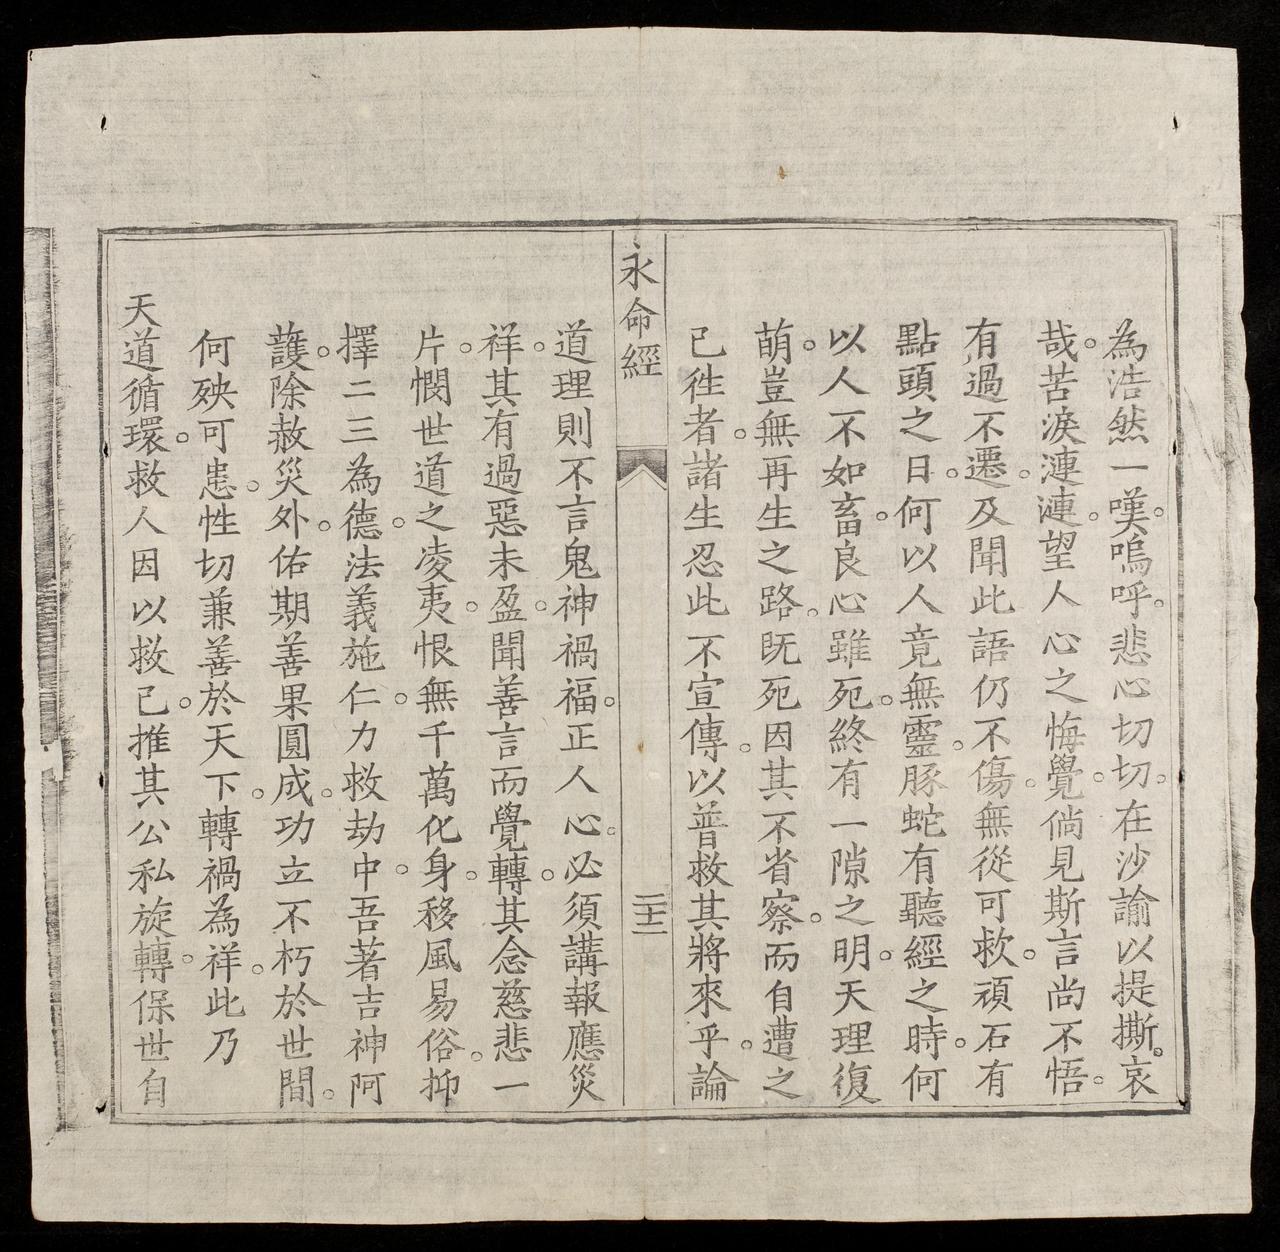 為浩然一嘆。嗚呼。悲心切切。在沙諭以提撕。哀
哉。苦淚漣漣。望人心之悔覺。倘見斯言尚不悟。
有過不遷。及聞此語仍不傷。無從可救。頑石有
點頭之日。何以人竟無靈。豚蛇有聽經之時。何
以人不如畜。良心雖死。終有一隙之明。天理復
萌。豈無再生之路。既死因其不省察。而自遭之
已徃者。諸生忍此不宣傳。以普救其將來乎。論
永命經
二十二
道理則不言鬼神禍福。正人心。必須講報應災
祥。其有過惡未盈。聞善言而覺。轉其念慈悲一
片。憫世道之凌夷。恨無千萬化身。移風易俗。抑
擇二三為德。法義施仁。力救劫中。吾著吉神阿
護。除赦災外。佑期善果圓成。功立不朽於世間。
何殃可恚。性切兼善於天下。轉禍為祥。此乃
天道循環。救人因以救己。推其公私旋轉。保世自